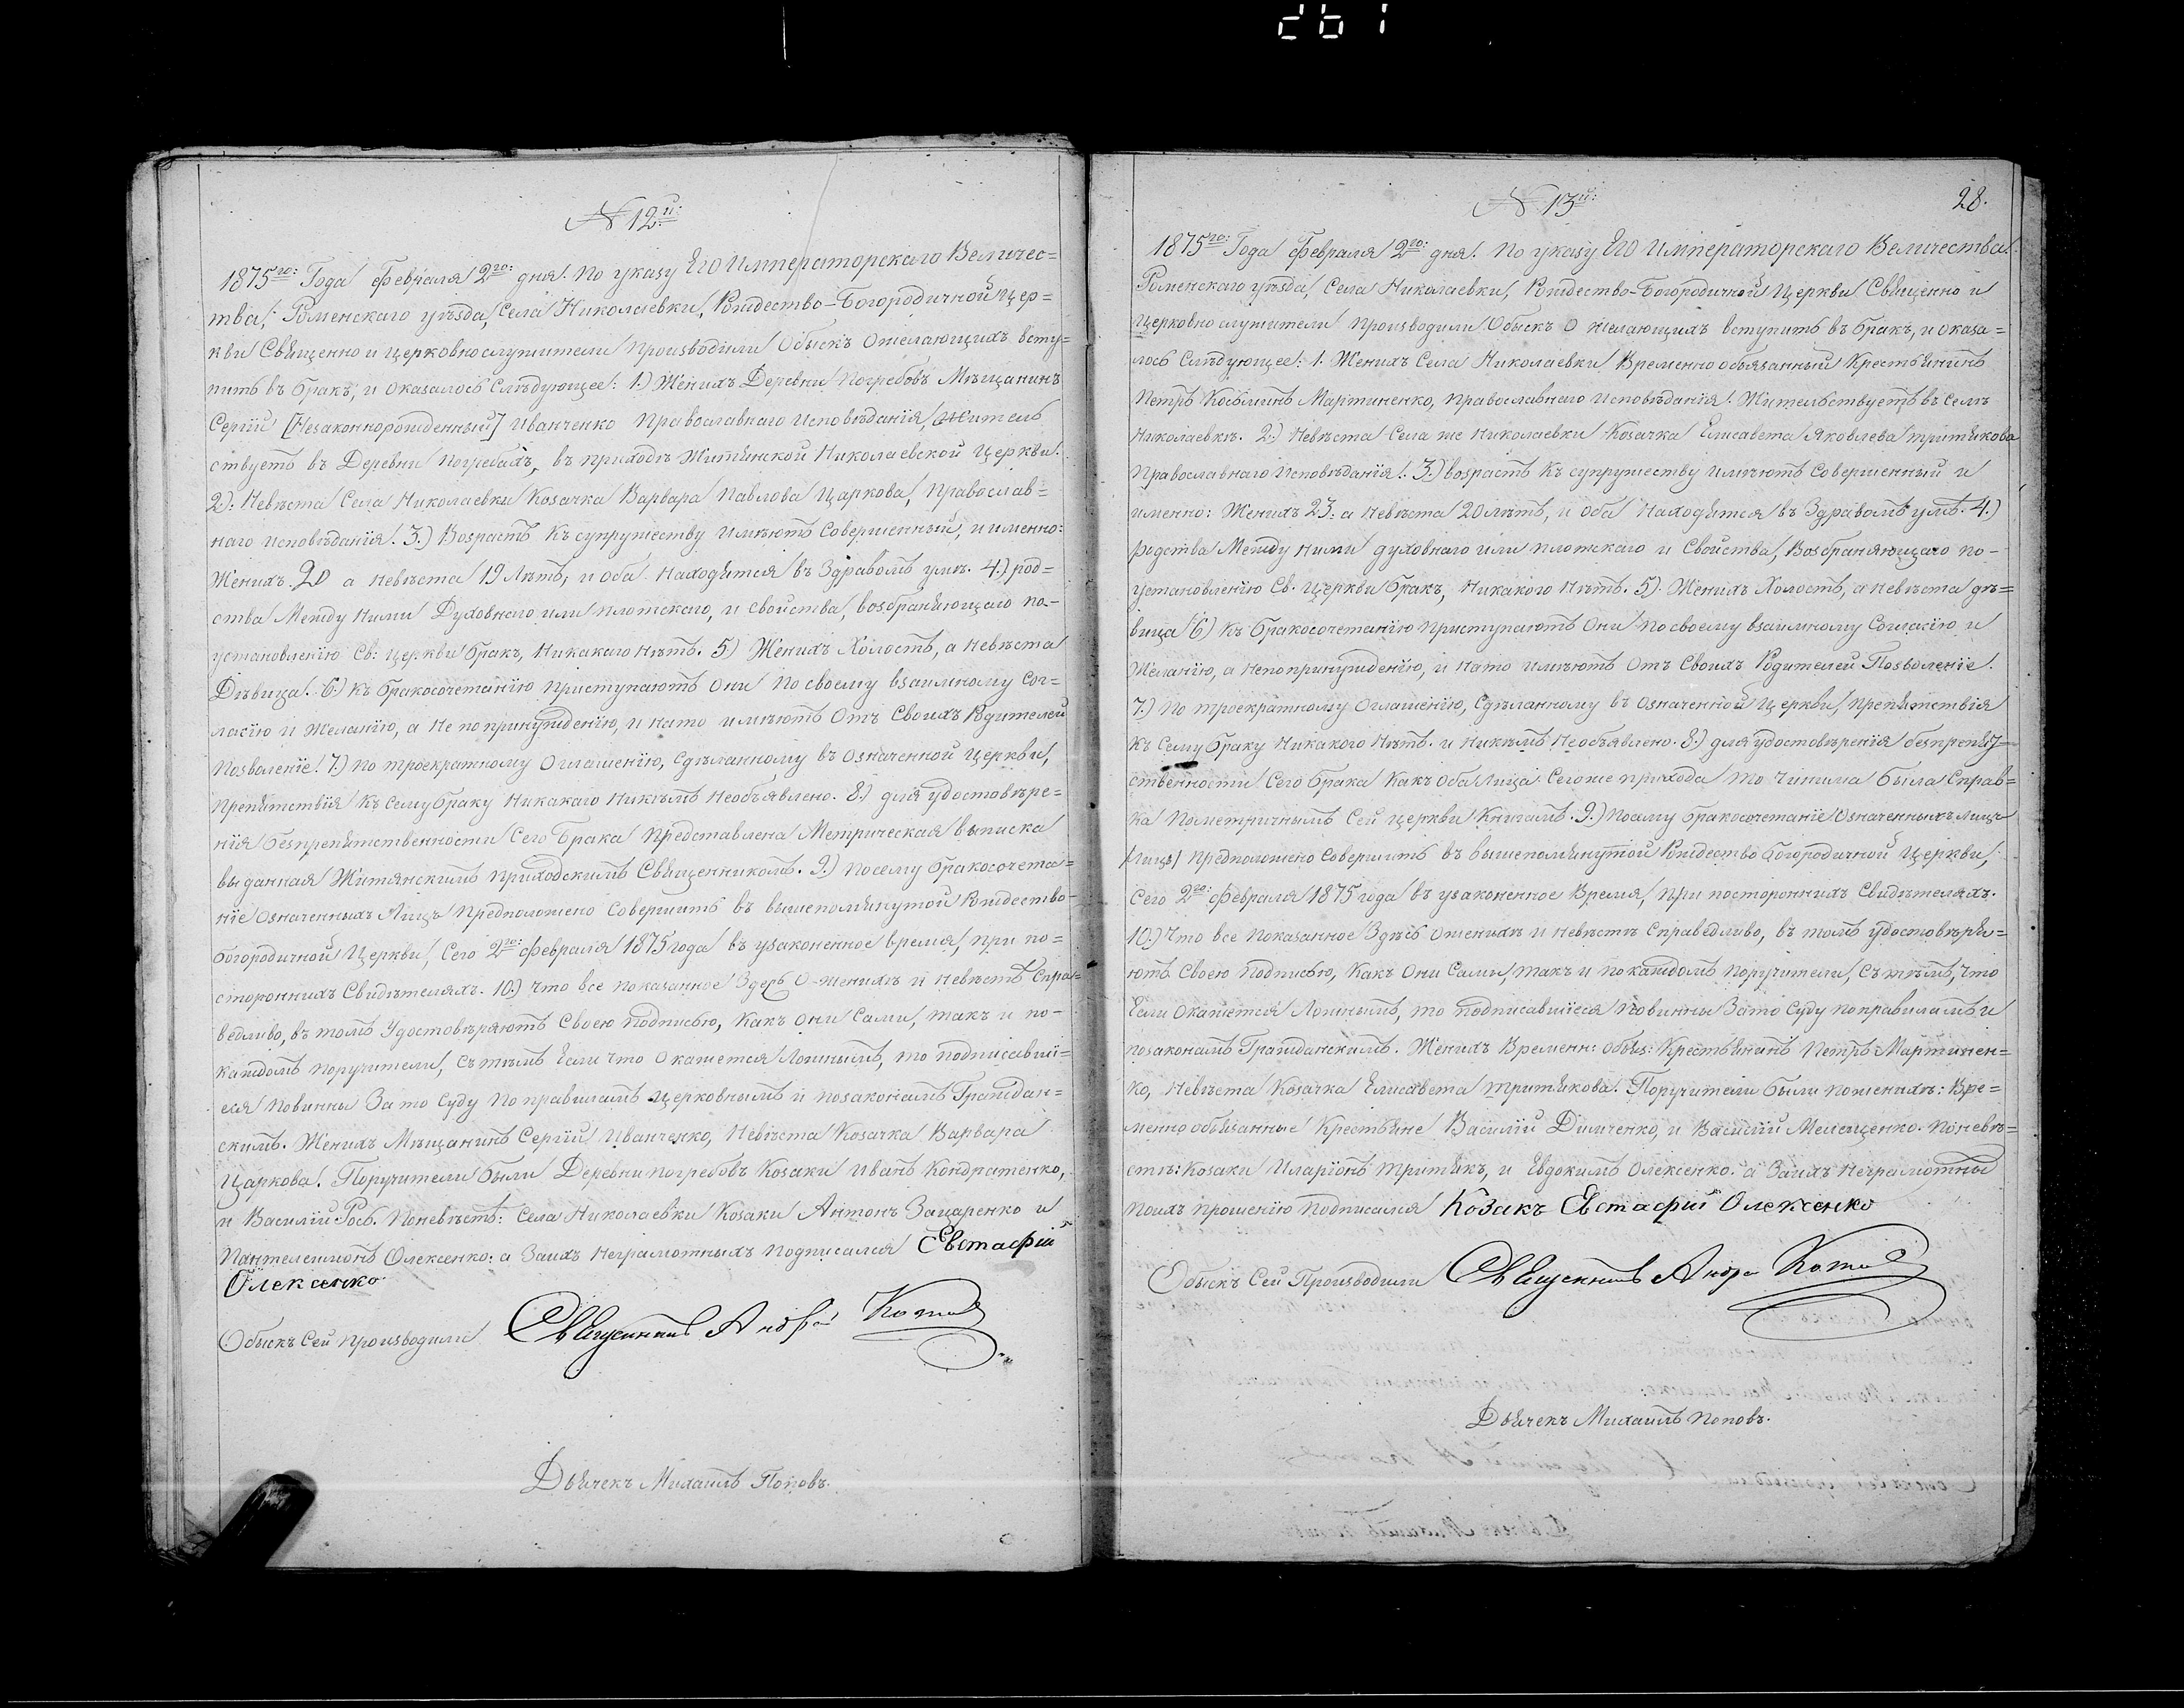 261
№ 12й:
1875го: Года Февраля 2го: дня. По указу Его Императорскаго Величес=
тва, Роменскаго уѣзда, Села Николаевки, Рождество-Богородичной Цер=
кви Священно и церковнослужители производили Обыскъ о желающихъ всту=
пить въ бракъ, и оказалось Слѣдующее: 1.) Женихъ Деревни Погребовъ Мѣщанинъ
Сергій [Незаконнорожденный] Иванченко Православнаго Исповѣданія, Житель
ствуетъ въ Деревни Погребахъ, въ приходѣ Житянской Николаевской Церкви.
2): Невѣста Села Николаевки Козачка Варвара Павлова Царкова, Православ=
наго исповѣданія. 3.) Возрастъ Къ супружеству имѣютъ Совершенный, и именно:
Женихъ 20 а невѣста 19 Лѣтъ, и оба находятся въ Здравомъ умѣ. 4.) род=
ства Между Ними Духовнаго или плотскаго, и свойства, возбраняющаго по-
установленію Св: церкви бракъ, Никакаго Нѣтъ. 5.) Женихъ Холостъ, а Невѣста
Дѣвица. 6.) Къ бракосочетанію приступаютъ Они По своему взаимному Сог=
ласію и Желанію, а Не по принужденію, и на то имѣютъ Отъ Своихъ Родителей
Позволеніе. 7.) По троекратному Оглашенію, Сдѣланному въ Означенной Церкви,
Препятствія Къ Сему браку Никакаго Никѣмъ Необъявлено. 8.) для удостовѣре=
нія безпрепятственности Сего Брака Представлена Метрическая выписка
выданная Житянскимъ Приходскимъ Священникомъ. 9.) Посему бракосочета=
ніе Означенныхъ Лицъ Предположено Совершить въ вышепомянутой Рождество-
Богородичной Церкви, Сего 2го: Февраля 1875 года въ узаконенное время, при по=
стороннихъ Свидѣтеляхъ. 10.) Что все показанное Здесь О-женихѣ и Невѣстѣ Спра=
ведливо, въ томъ Удостовѣряютъ Своею Подписью, Какъ Они Сами, такъ и по-
каждомъ поручители, Съ тѣмъ Если что Окажется Ложнымъ, то подписавші=
еся Повинны За то Суду По правиламъ Церковнымъ и позаконамъ Граждан=
скимъ. Женихъ Мѣщанинъ Сергій Иванченко, Невѣста Козачка Варвара
Царкова. Поручители были Деревни Погребовъ Козаки Иванъ Кондратенко,
и Василій Рось. Поневѣстѣ: Села Николаевки Козаки Антонъ Зацаренко и
Пантелеимонъ Олексенко: а Заихъ Неграмотныхъ Подписался Евстафій
Олексенко
Обыскъ Сей Производили Священникъ Андрей Котов
Дьячекъ Михаилъ Поповъ.
№ 13й:
28.
1875го: Года Февраля 2го: дня. По указу Его Императорскаго Величества.
Роменскаго уѣзда, Села Николаевки, Рождество-Богородичной Церкви Священно и
Церковно служители Производили Обыскъ О желающихъ вступить въ бракъ, и оказа=
лось Слѣдующее: 1. Женихъ Села Николаевки Временно обязанный Крестьянинъ
Петръ Косьминъ Мартиненко, Православнаго Исповѣданія. Жительствуетъ въ Селѣ
Николаевкѣ. 2.) Невѣста Села же Николаевки Козачка Елисавета Яковлева Притякова
Православнаго Исповѣданія. 3.) возрастъ Къ супружеству имѣютъ Совершенный и
именно: Женихъ 23. а Невѣста 20 лѣтъ, и Оба Находятся въ Здравомъ умѣ. 4.)
родства Между Ними духовнаго или плотскаго и Свойства, Возбраняющаго по-
установленію Св. Церкви бракъ, Никакого Нѣтъ. 5). Женихъ Холостъ, а Невѣста дѣ=
вица 6) Къ бракосочетанію Приступаютъ Они По своему взаимному Согласію и
Желанію, а Непопринужденію, и Нато имѣютъ Отъ Своихъ Родителей Позволеніе.
7.) По троекратному Оглашенію, Сдѣланному въ Означенной Церкви, Препятствія
Къ Сему браку Никакого Нѣтъ. и Никѣмъ Необъявлено. 8.) для удостовѣренія безпрепят
ственности Сего брака Какъ Оба Лица Сегоже прихода то Чинима была Справ=
ка Пометричнымъ Сей Церкви Книгамъ. 9.) Посему бракосочетаніе Означенныхъ лицъ
[лицъ] Предположено Совершить въ вышепомянутой Рождество Богородичной Церкви,
Сего 2го: Февраля 1875 года въ узаконенное Время, При постороннихъ Свидѣтеляхъ.
10.) Что все Показанное Здѣсь Оженихѣ и Невѣстѣ Справедливо, въ томъ удостовѣря=
ютъ Своею Подписью, Какъ Они Сами, такъ и по каждомъ Поручители, Съ тѣмъ, Что
Если Окажется Ложнымъ, то Подписавшіеся Повинны Зато Суду поправиламъ и
позаконамъ Гражданскимъ. Женихъ Временн: Обяз: Крестьянинъ Петръ Мартинен=
ко, Невѣста Козачка Елисавета Притякова. Поручители были Поженихѣ: Вре=
менно обязанные Крестьяне Василій Димченко, и Василій Мелещенко. Поневѣ=
стѣ: Козаки Иларіонъ Притякъ, и Евдокимъ Олексенко. а Заихъ Неграмотны
Поихъ прошенію Подписался Козакъ Евстафій Олексенко
Обыскъ Сей Производили Священникъ Андрей Котов
Дьячекъ Михаилъ Поповъ.